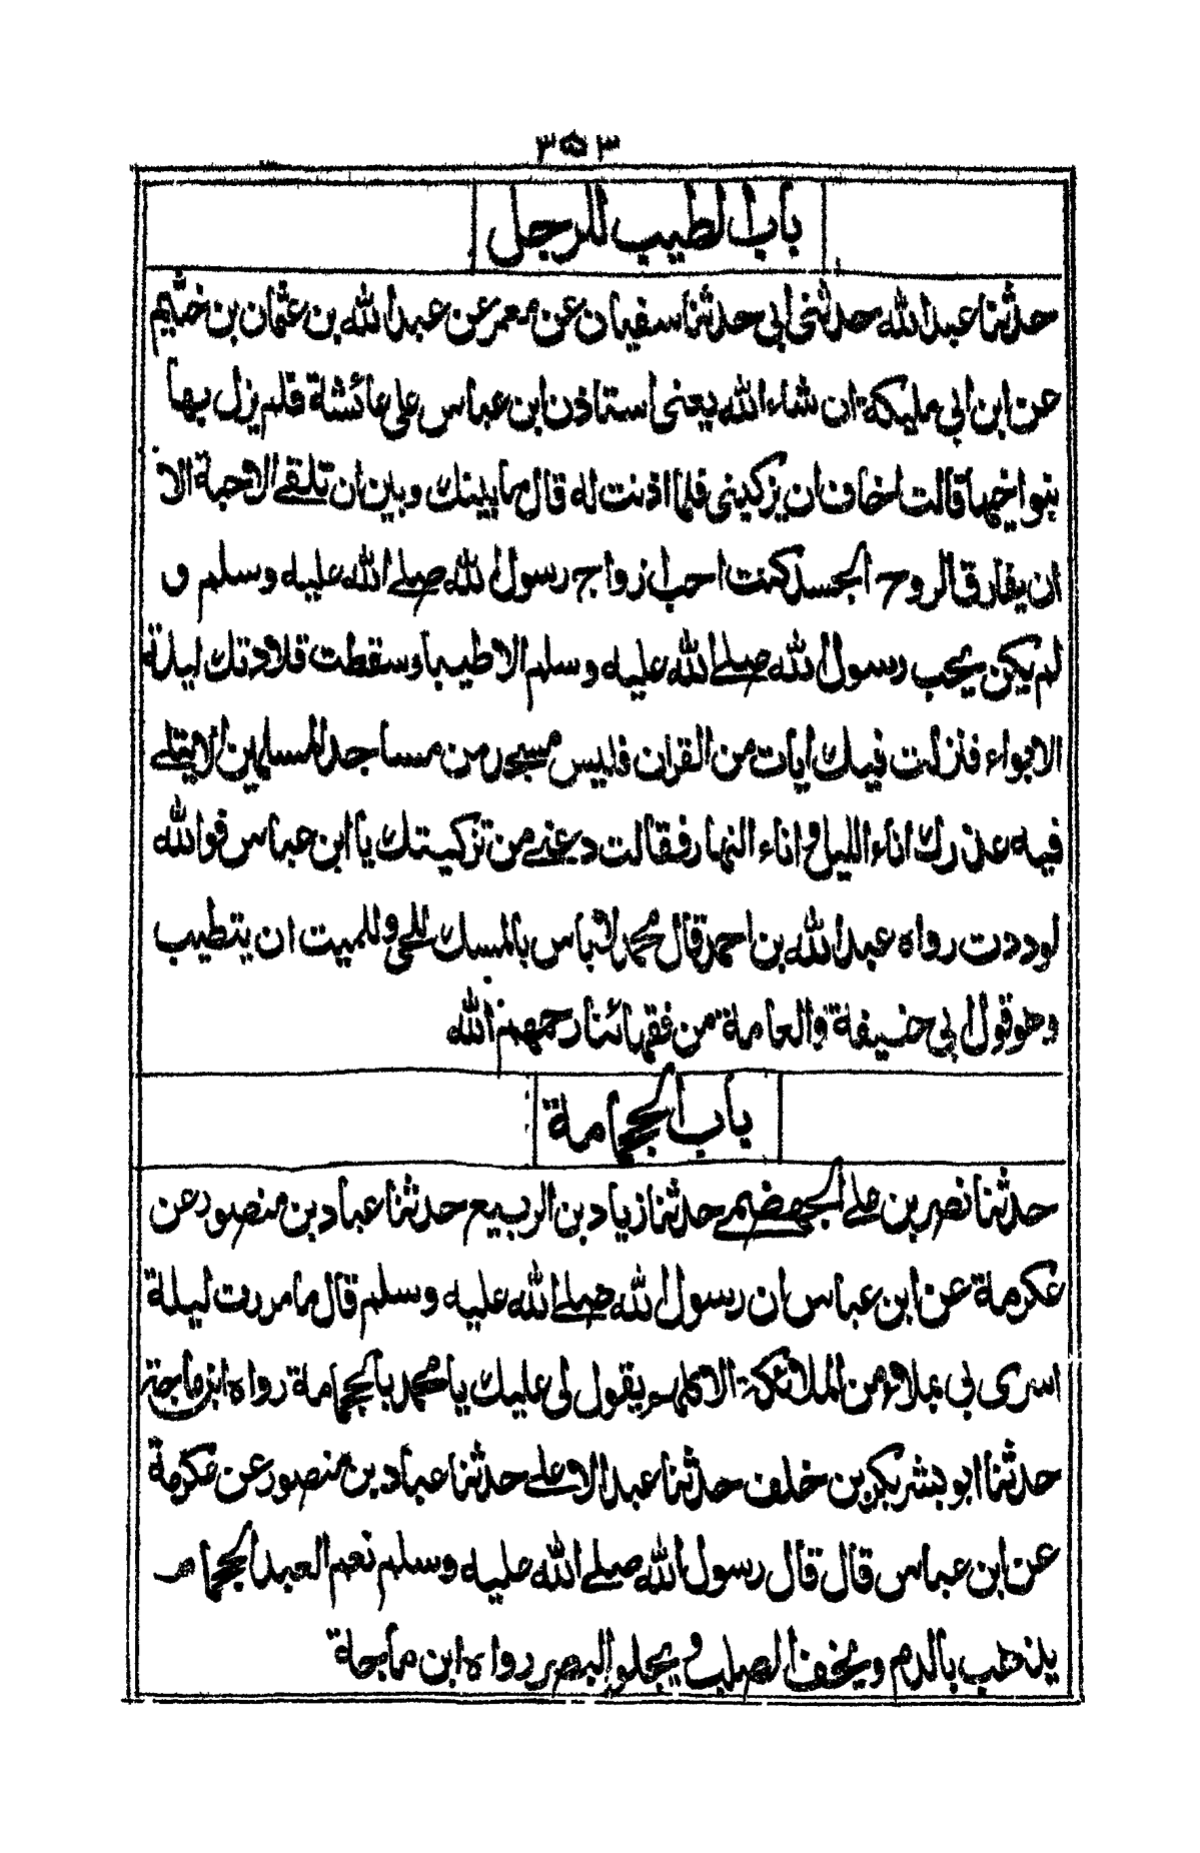 ٣٥٣
باب الطيب للرجل
حدثنا عبد الله حدثني ابي حدثنا سفيان عن معمر عن عبد الله بن عثمان بن خثيم
عن ابن ابي مليكة ان شاء الله يعني استاذن ابن عباس على عائشة فلم يزل بها
بنو اخيها قالت اخاف ان يزكيني فلما اذنت له قال ما بينك وبين ان تلقى الاحبة الا
ان يفارق الروح الجسد كنت احب ازواج رسول الله صلى الله عليه وسلم و
لم يكن يحب رسول الله صلى الله عليه وسلم الا طيبا وسقطت قلادتك ليلة
الابواء فنزلت فيك ايات من القران فليس مسجد من مساجد المسلمين الا يتلى
فيه عذرك اناء الليل و اناء النهار فقالت دعني من تزكيتك يا ابن عباس فوالله
لوددت رواه عبد الله بن احمد قال محمد لا باس بالمسك للحي وللميت ان يتطيب
وهو قول ابي حنيفة والعامة من فقهائنا رحمهم الله
باب الحجامة
حدثنا نصر بن علي الجهضمي حدثنا زياد بن الربيع حدثنا عباد بن منصور عن
عكرمة عن ابن عباس ان رسول الله صلى الله عليه وسلم قال ما مررت ليلة
اسرى بي بملاء من الملائكة الا كلهم يقول لي عليك يا محمد بالحجامة رواه ابن ماجة
حدثنا ابو بشر بكر بن خلف حدثنا عبد الاعلى حدثنا عباد بن منصور عن عكرمة
عن ابن عباس قال قال رسول الله صلى الله عليه وسلم نعم العبد الحجام
يذهب بالدم ويخف الصلب و يجلو البصر رواه ابن ماجة